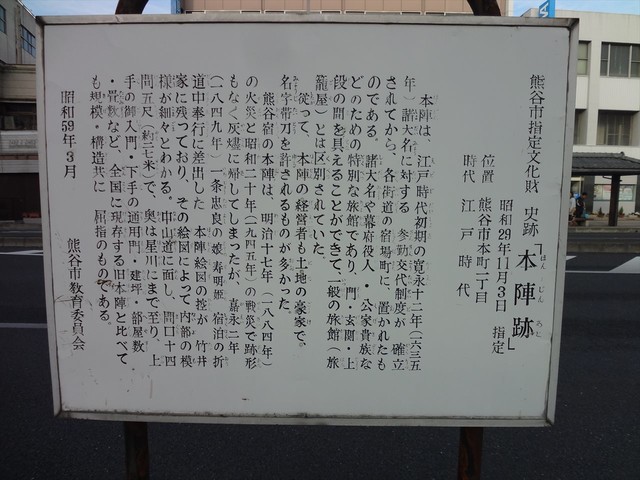 熊谷市指定文化財 史跡「本陣跡」
ほんじんあと
昭和29年11月3日 指定
位置 熊谷市本町二丁目
時代 江戸時代
本陣は、江戸時代初期の寛永十二年(一六三五
年)諸大名に対する 参勤交代制度が 確立
されてから、各街道の宿場町に、置かれたも
のである。諸大名や幕府役人・公家貴族な
どのための特別な旅館であり、門・玄関・上
段の間を具えることができて、一般の旅館(旅
籠屋)とは区別されていた。
従って、本陣の経営者も土地の豪家で。
名字帯刀を許されるものが多かった。
熊谷宿の本陣は、明治十七年(一八八四年)
の火災と昭和二十年(一九四五年)の戦災で跡形
もなく灰燼に帰してしまったが、嘉永二年
(一八四九年)一条忠良の娘寿明姫 宿泊の折
道中奉行に差出した 本陣絵図の控が 竹井
家に残っており、その絵図によって、内部の模
様が細々とわかる。中山道に面し、間口十四
間五尺(約二七米)で、奥は星川にまで至り、上
手の御入門・下手の通用門・建坪・部屋数
・畳数など、全国に現存する旧本陣と比べて
も規模・構造共に 屈指のものである。
昭和59年3月
熊谷市教育委員会